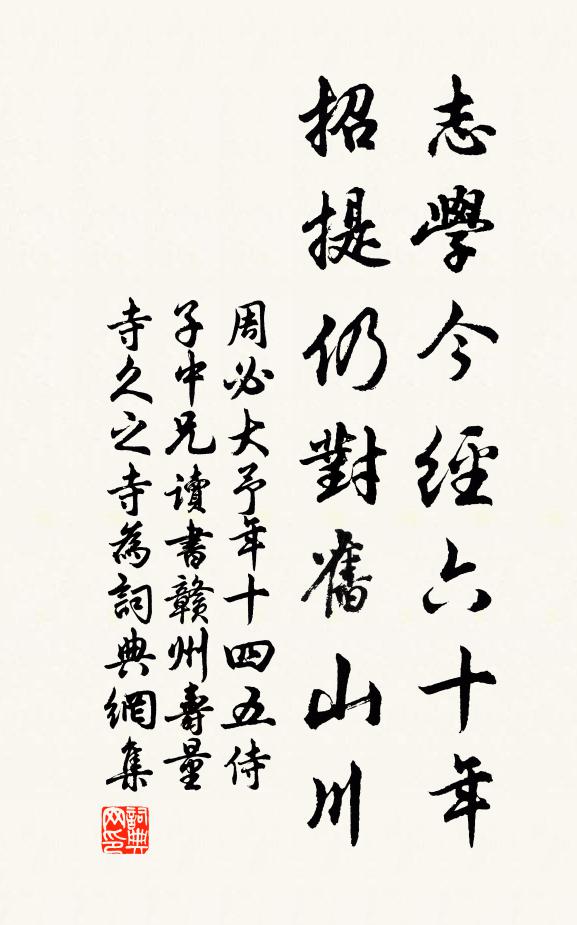 志學今經六十年
招提仍對舊山川
周必大予年十四五侍
子中兄讀書贛州壽量
寺久之寺為詞典網集
詞典網印